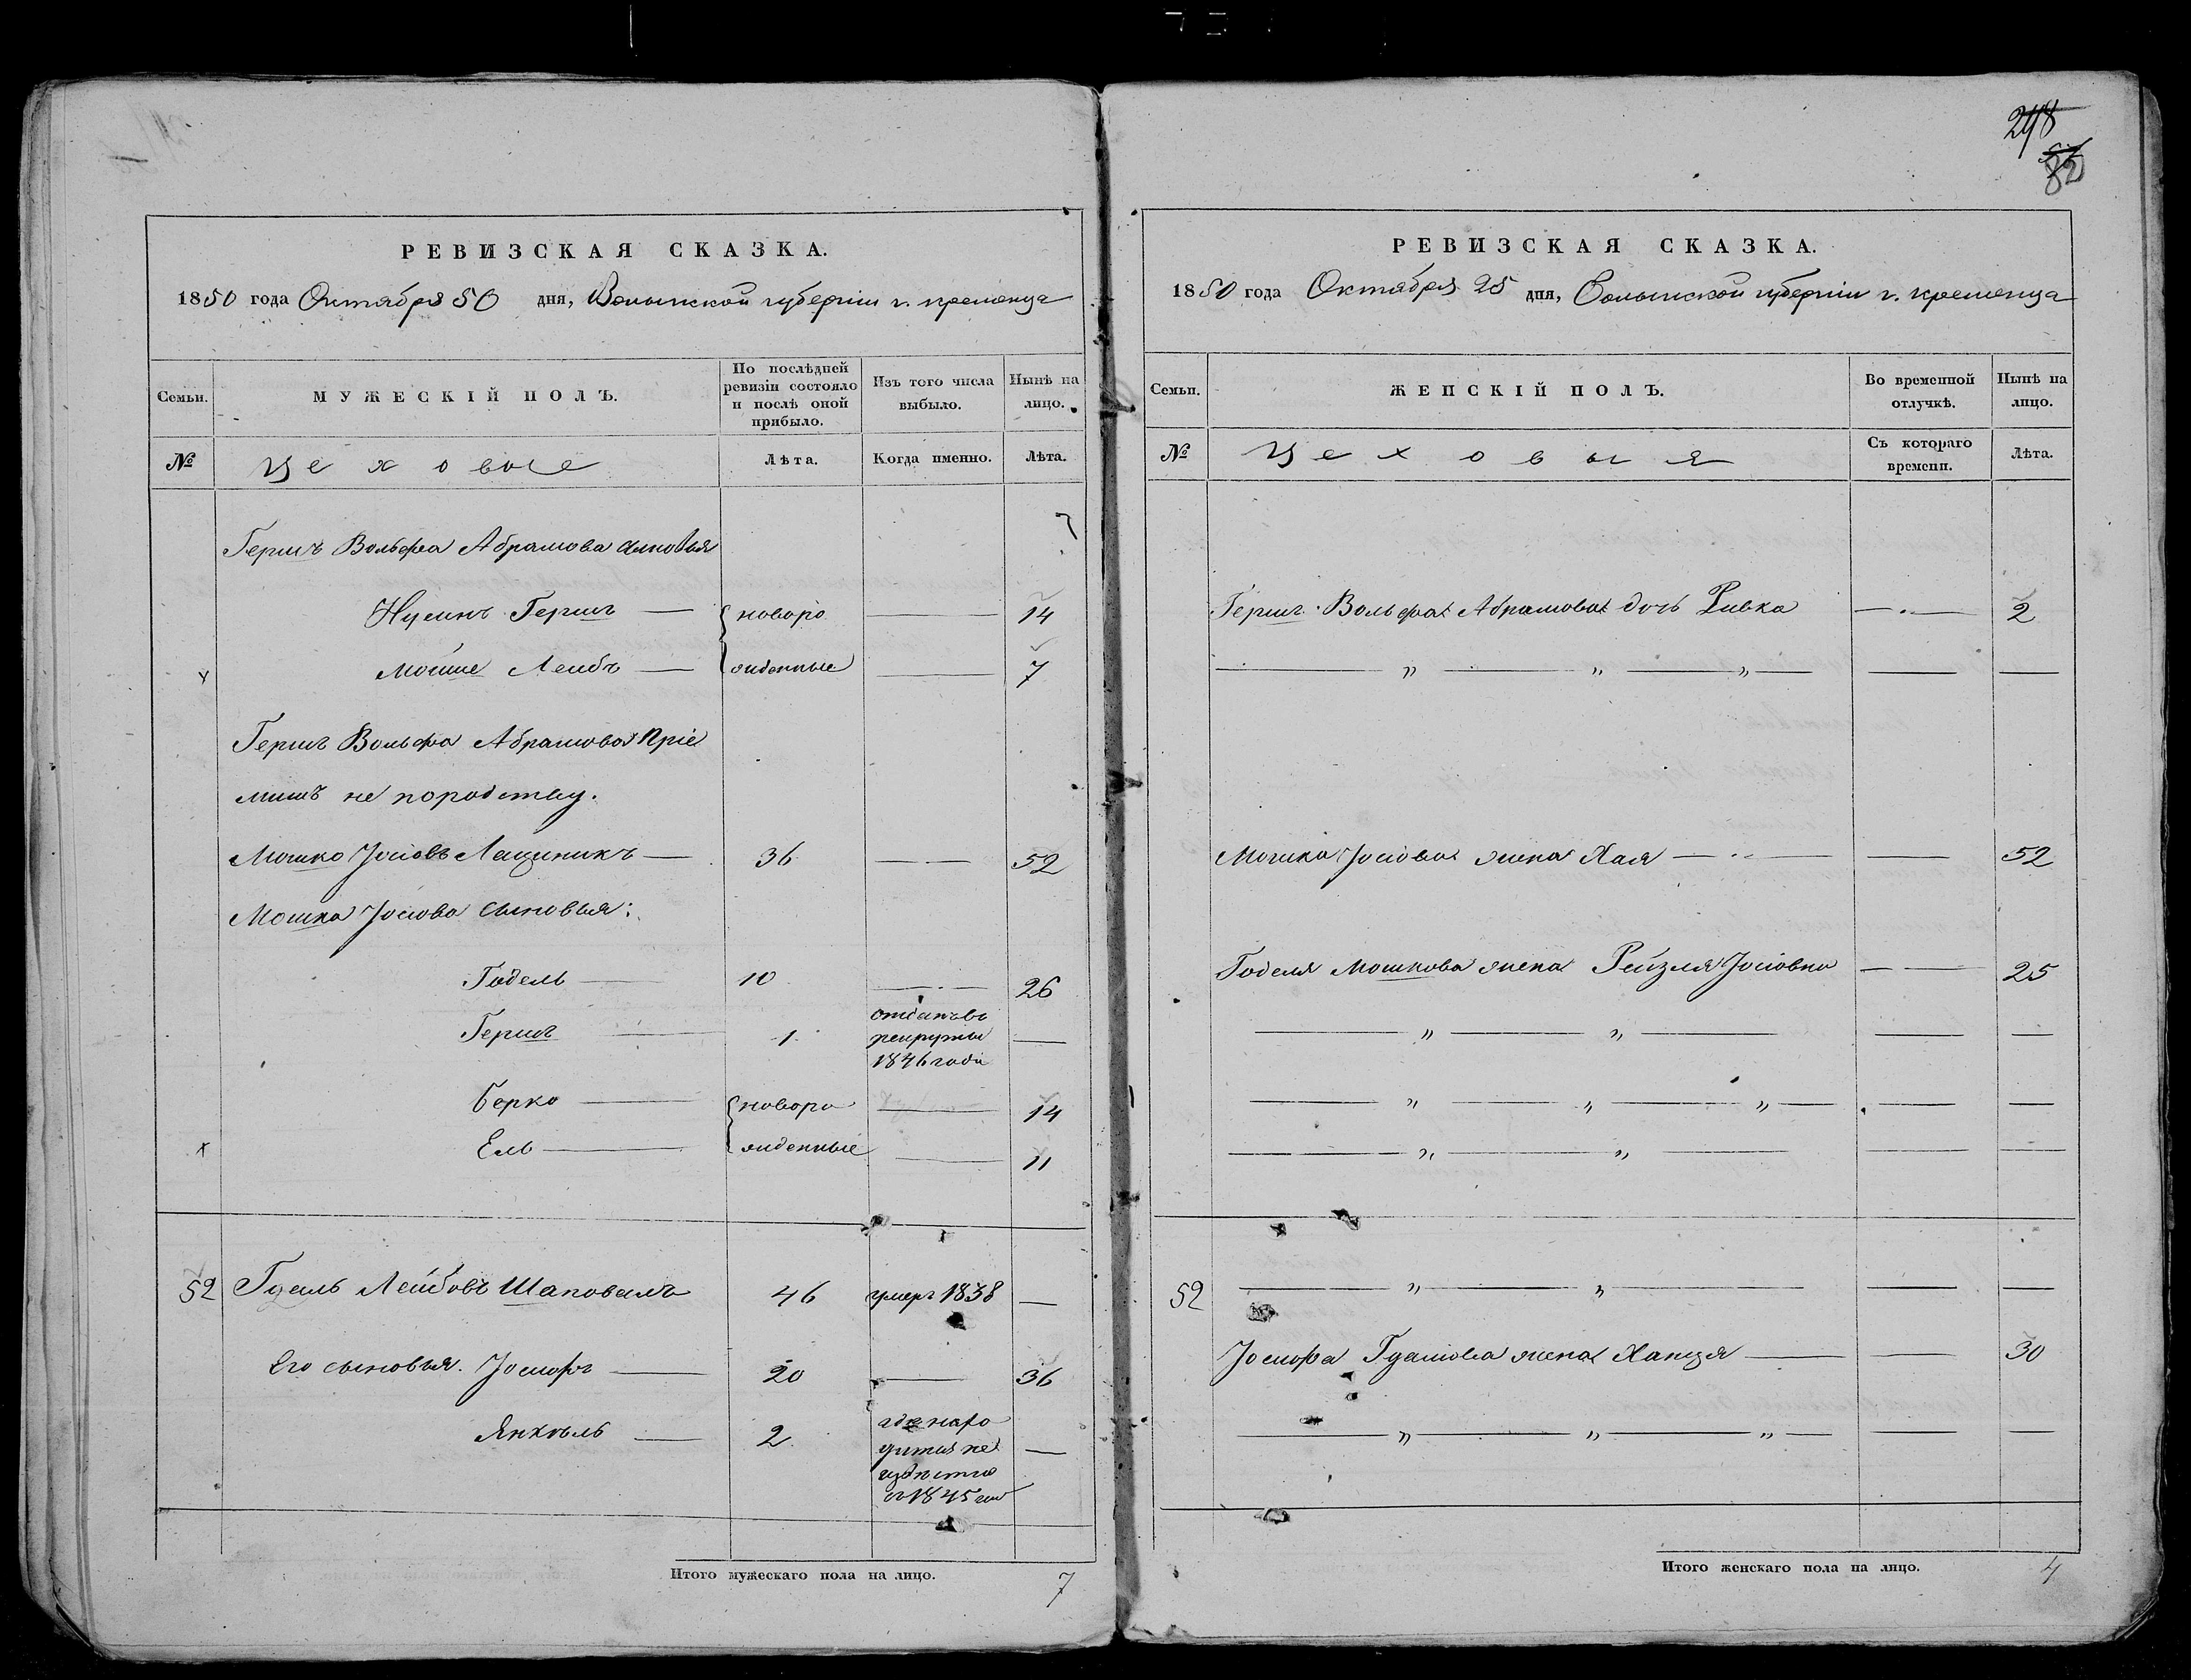 РЕВИЗСКАЯ СКАЗКА.
1850 года Октября 50 дня, Волынской губерніи г. кременца
Семьи.
МУЖЕСКІЙ ПОЛЪ.
По послѣдней ревизіи состояло и послѣ оной прибыло.
Изъ того числа выбыло.
Нынѣ на лицо.
№
Цеховые
Лѣта.
Когда именно.
Лѣта.
Гершъ Вольфа Абрамова сыновья
Нусинъ Гершъ — новоро — 14
Мойше Лейбъ — жденные — 7
Гершъ Вольфа Абрамова Пріе
мышъ не породству.
Мошко Іосіовъ — 36 — 52
Мошка Іосіова сыновья:
Годель — 10 — 26
Гершъ — 1
отданъ въ
рекруты
1846 года —
Берко — новоро — 14
Ель — жденные — 11
52 Лейбовъ Шаповалъ 46 умеръ 1838 —
Его сыновья. Іосифъ — 20 — 36
Янкель — 2
где нахо
дится не
извѣстно
съ 1845 —
Итого мужескаго пола на лицо. 7
248
82
РЕВИЗСКАЯ СКАЗКА.
1850 года Октября 25 дня, Волынской губерніи г. кременца
Семьи.
ЖЕНСКІЙ ПОЛЪ.
Во временной отлучкѣ.
Нынѣ на лицо.
№
Цеховыя
Съ котораго времени.
Лѣта.
Гершъ Вольфа Абрамова дочь Ривка — 2
— „ — „ — „ — — —
Мошка Іосіова жена Хая — — 52
Годеля Мошкова жена Рейзля Іосіовна — 25
— „ — „ — — —
— „ — „ — „ — — —
— „ — „ — — —
52 — „ — „ — — —
Іосифа жена Ханця — — 30
— „ — „ — „ — — —
Итого женскаго пола на лицо. 4